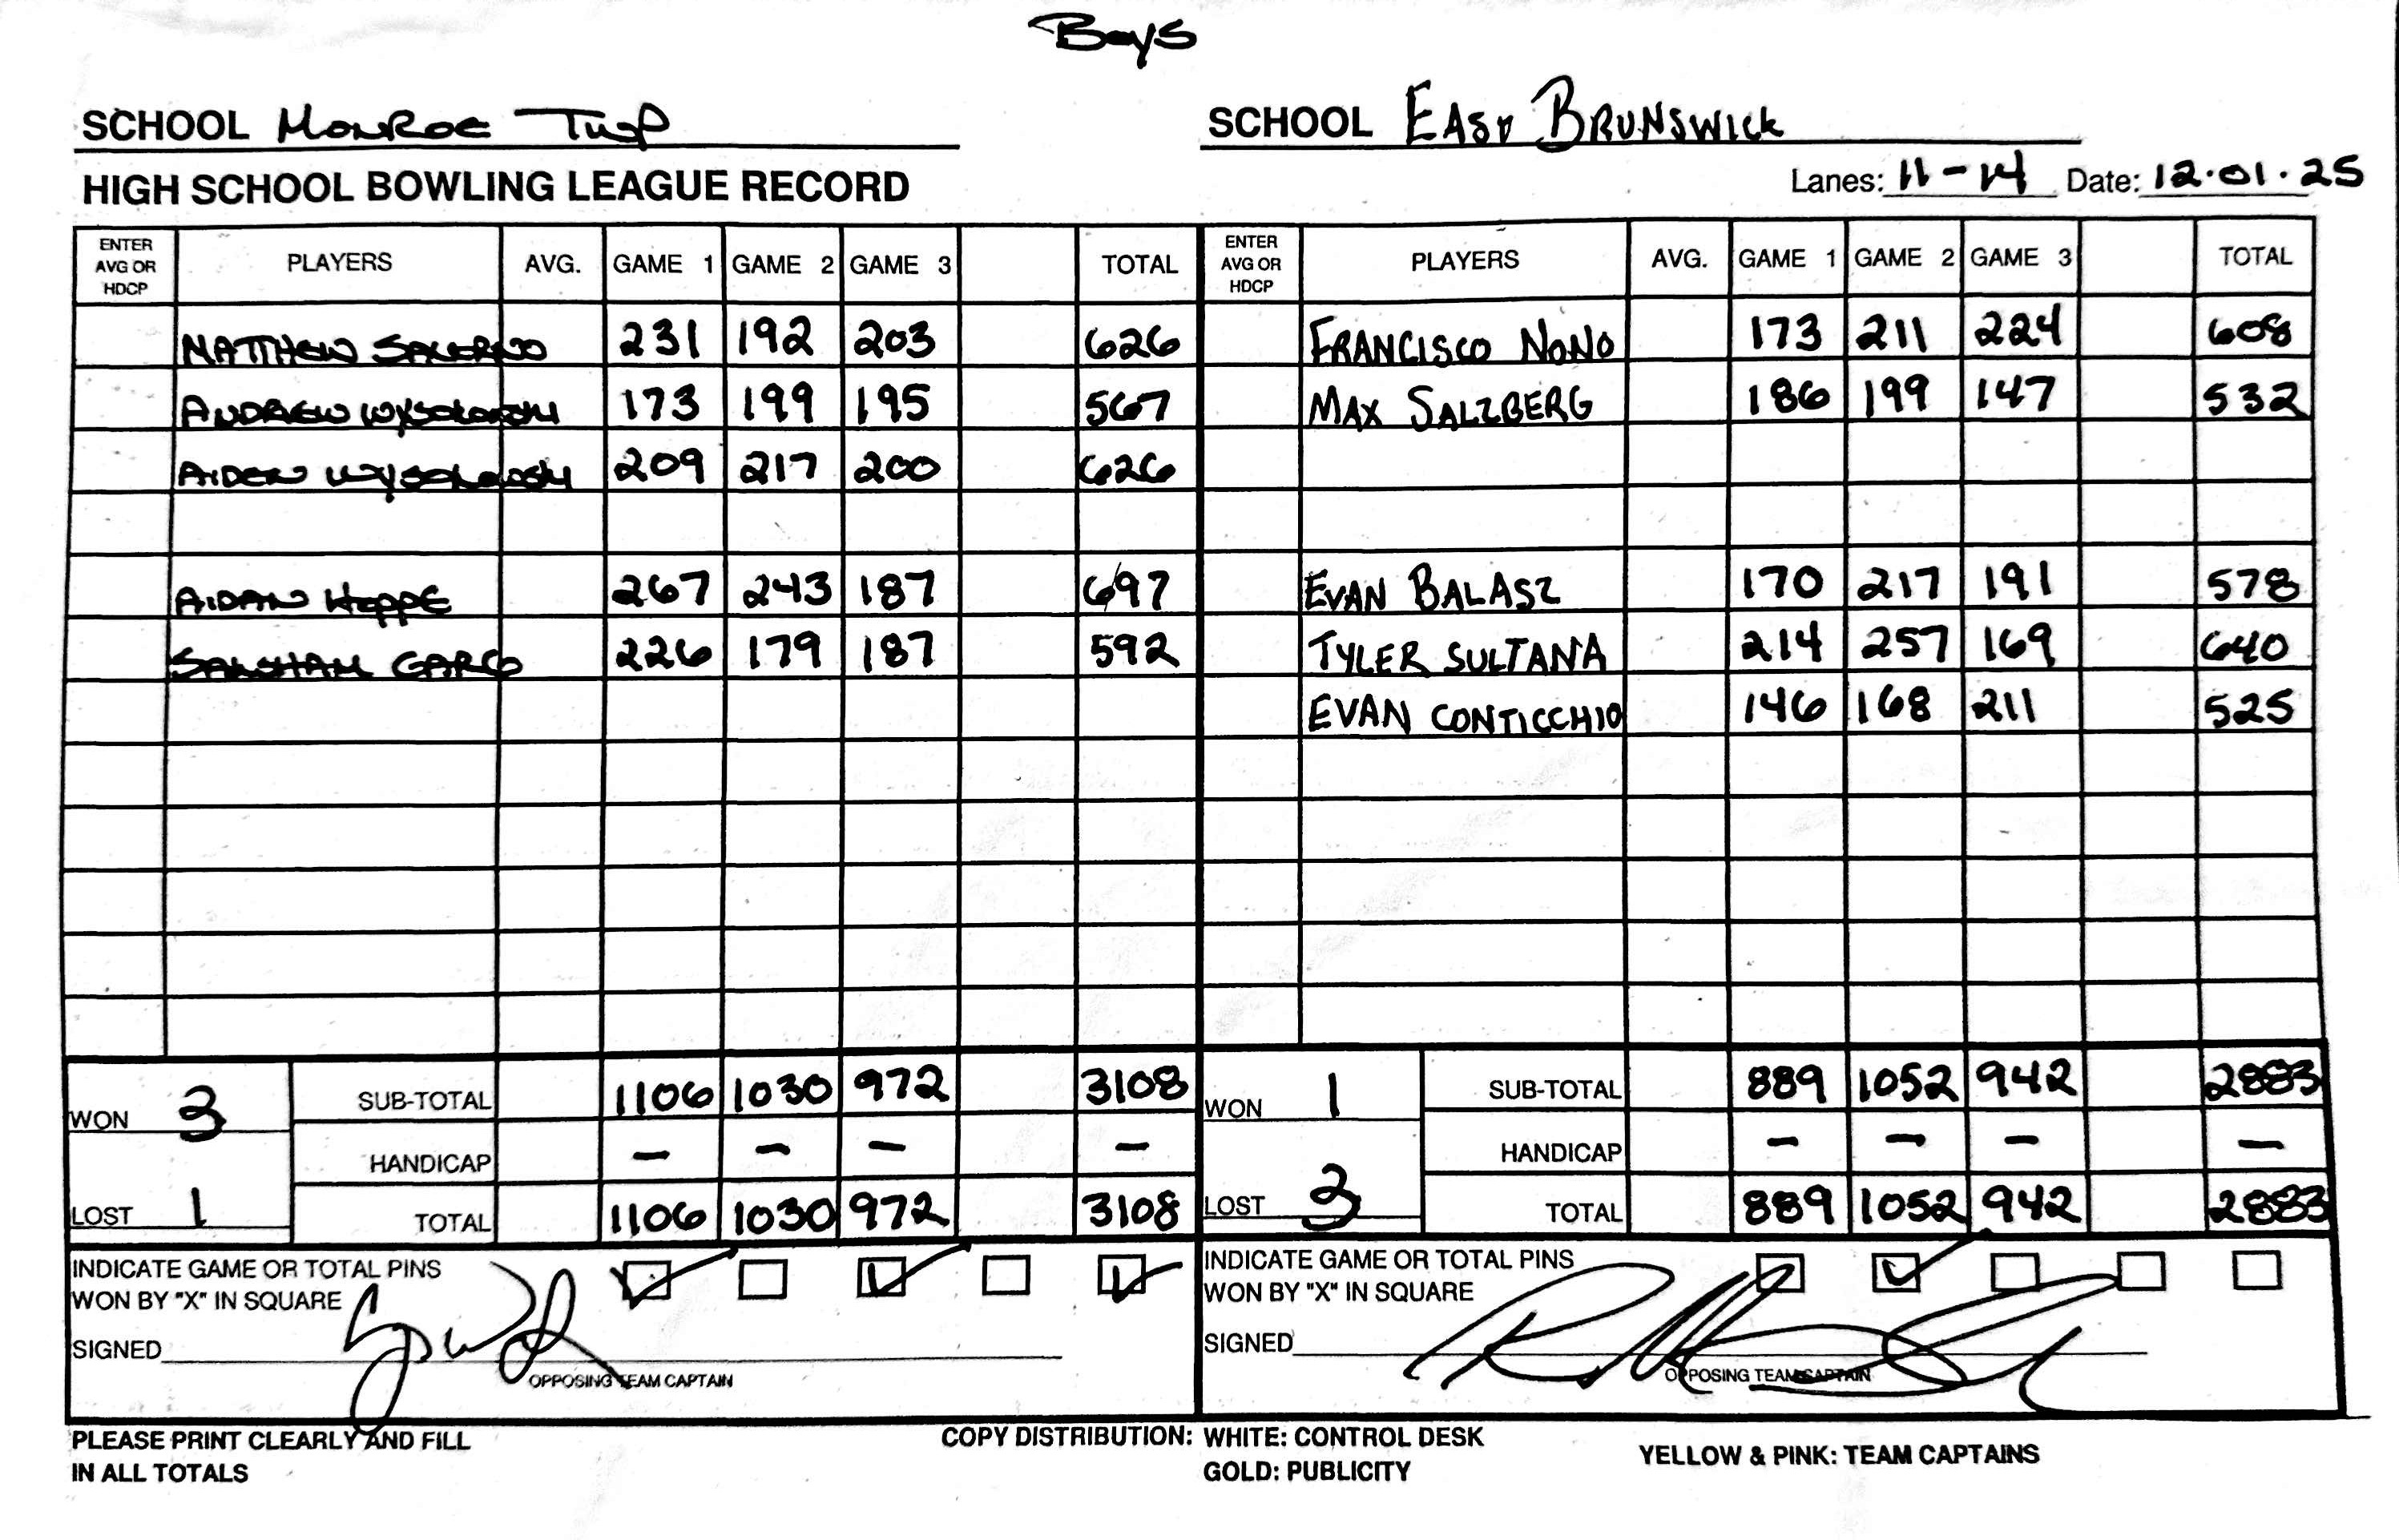 Boys
SCHOOL Monroe Twp SCHOOL East Brunswick
HIGH SCHOOL BOWLING LEAGUE RECORD Lanes: 11-14 Date: 12.01.25
ENTER AVG OR HDCP PLAYERS AVG. GAME 1 GAME 2 GAME 3 TOTAL ENTER AVG OR HDCP PLAYERS AVG. GAME 1 GAME 2 GAME 3 TOTAL
MATTHEW SALERNO 231 192 203 626 FRANCISCO NONO 173 211 224 608
ANDREW 173 199 195 567 MAX SALZBERG 186 199 147 532
AIDEN 209 217 200 626
AIDAN HOPPE 267 243 187 697 EVAN BALASZ 170 217 191 578
GARG 226 179 187 592 TYLER SULTANA 214 257 169 640
EVAN CONTICCHIO 146 168 211 525
WON 3 SUB-TOTAL 1106 1030 972 3108 WON 1 SUB-TOTAL 889 1052 942 2883
HANDICAP - - - - HANDICAP - - - -
LOST 1 TOTAL 1106 1030 972 3108 LOST 3 TOTAL 889 1052 942 2883
INDICATE GAME OR TOTAL PINS INDICATE GAME OR TOTAL PINS
WON BY "X" IN SQUARE WON BY "X" IN SQUARE
SIGNED SIGNED
OPPOSING TEAM CAPTAIN OPPOSING TEAM CAPTAIN
PLEASE PRINT CLEARLY AND FILL COPY DISTRIBUTION: WHITE: CONTROL DESK YELLOW & PINK: TEAM CAPTAINS
IN ALL TOTALS GOLD: PUBLICITY